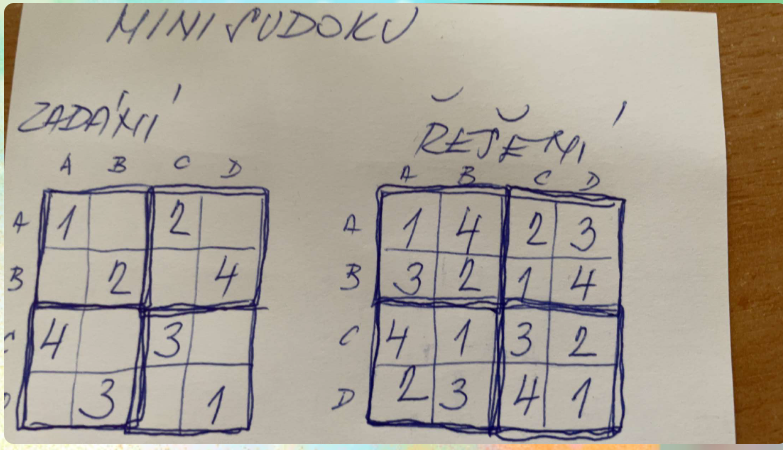 MINI SUDOKU
ZADÁNÍ
A B C D
A 1 2
B 2 4
C 4 3
D 3 1
ŘEŠENÍ
A B C D
A 1 4 2 3
B 3 2 1 4
C 4 1 3 2
D 2 3 4 1